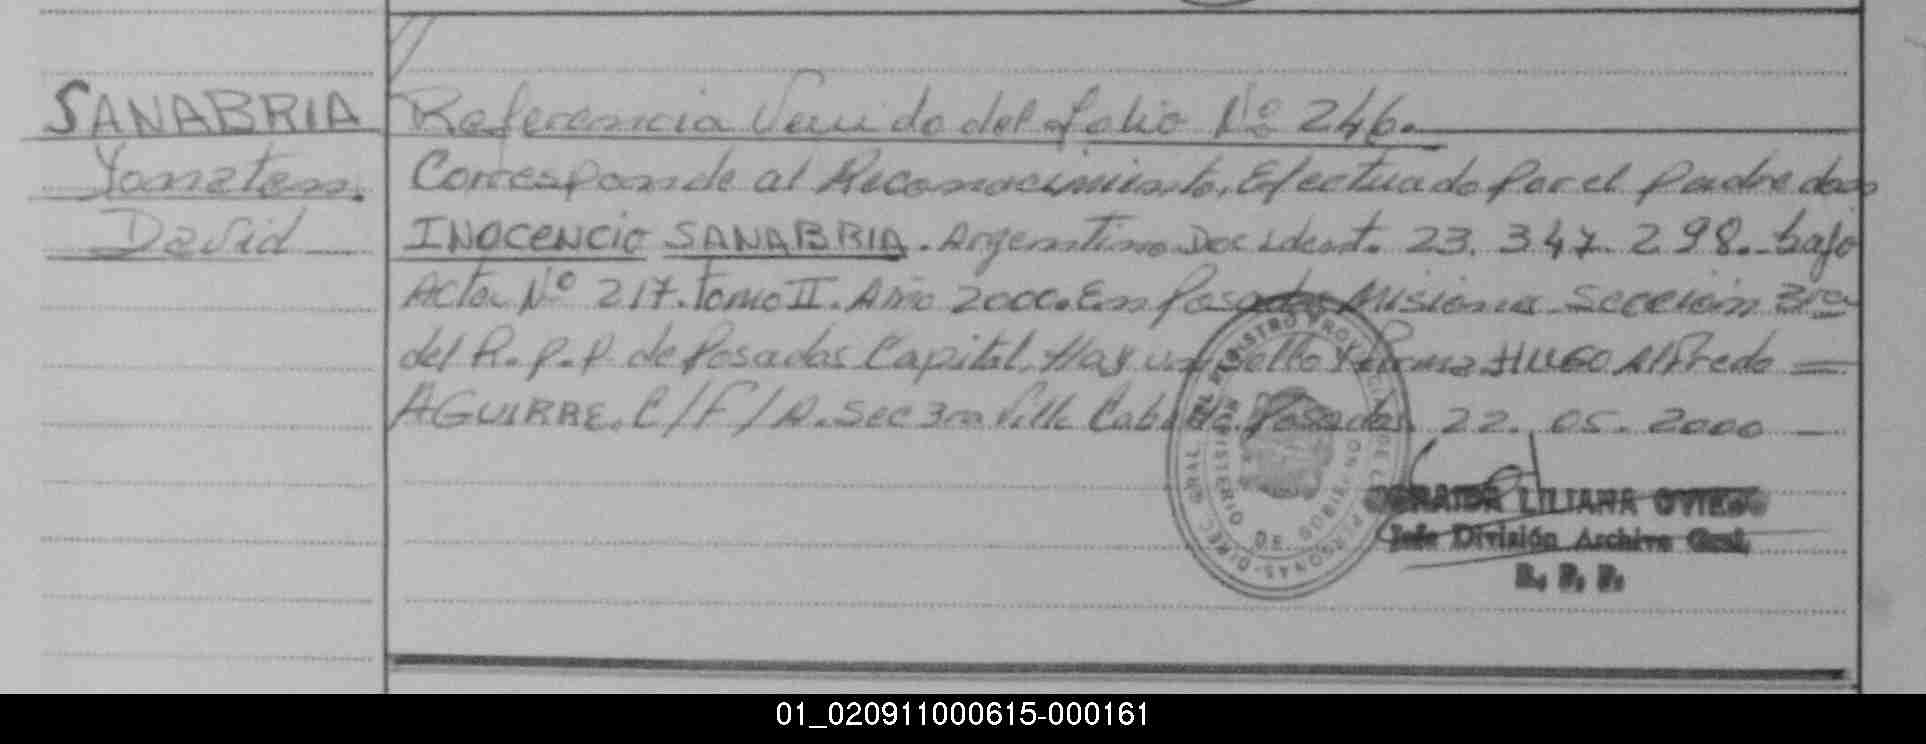 SANABRIA
Yonatan
David
Referencia Venido del folio Nº 246.
Corresponde al Reconocimiento, Efectuado Por el padre don
INOCENCIO SANABRIA. Argentino Doc ident. 23.347.298.- bajo
Acta Nº 217. tomo II. Año 2000. En Posadas Misiones Sección 3ra
del R.P.P. de Posadas Capital. Hay un sello Firma HUGO Alfredo
AGUIRRE. C/F/D. Sec 3ra Villa Posadas 22.05.2000
DIREC. GRAL. DEL REGISTRO PROVINCIAL DE LAS PERSONAS
LILIANA OVIEDO
Jefe División Archivo Gral.
R. P. P.
01_020911000615-000161